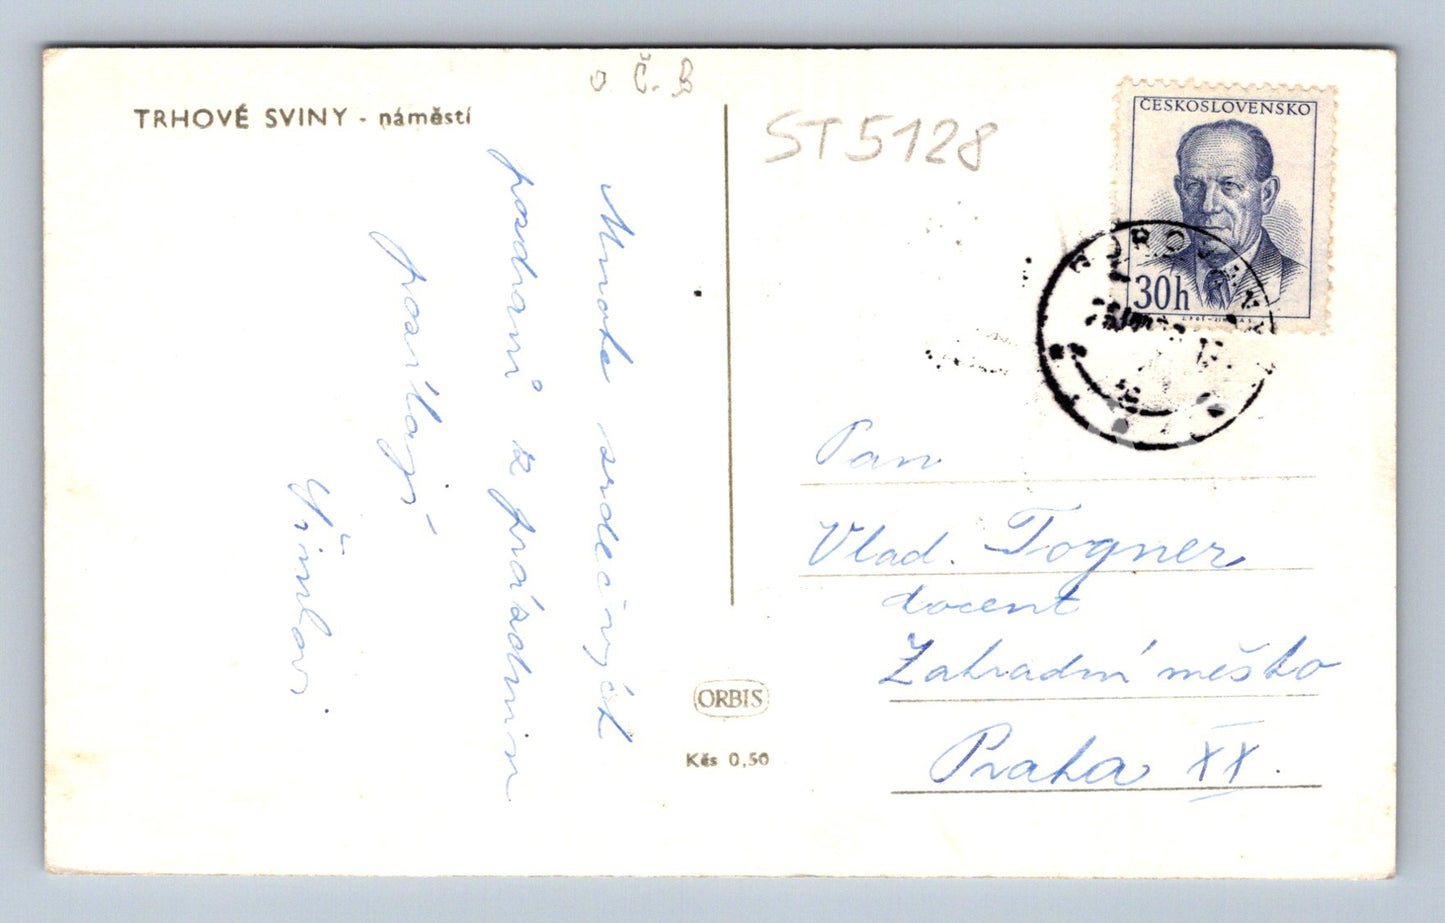 u Č. B
TRHOVÉ SVINY - náměstí
Mnoho srdečných
pozdravů z prázdnin
posílají
ORBIS
Kčs 0,50
ST5128
ČESKOSLOVENSKO
30h
Pan
Vlad. Togner
docent
Zahradní město
Praha XX.